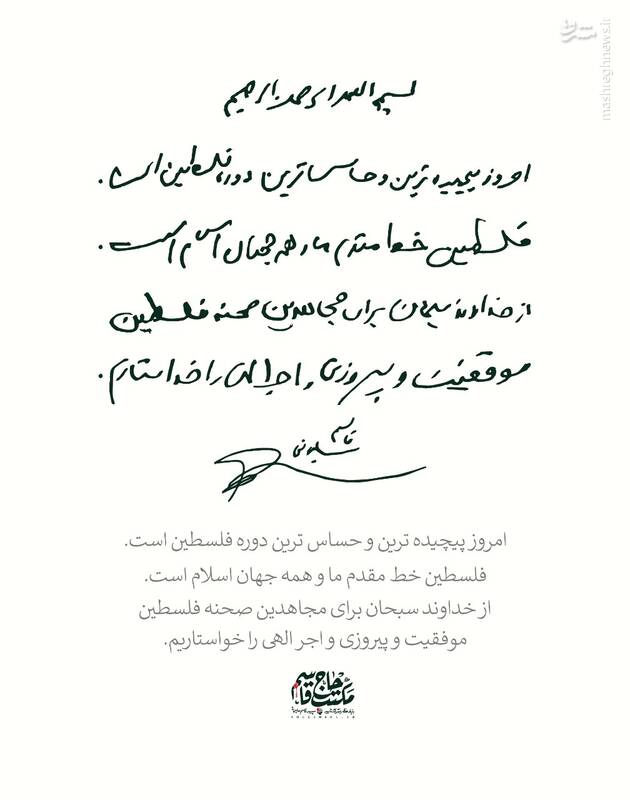 مشرق
mashreghnews.ir
بسم الله الرحمن الرحیم
امروز پیچیده ترین و حساس ترین دوره فلسطین است.
فلسطین خط مقدم ما و همه جهان اسلام است.
از خداوند سبحان برای مجاهدین صحنه فلسطین
موفقیت و پیروزی و اجر الهی را خواستارم.
قاسم
سلیمانی
امروز پیچیده ترین و حساس ترین دوره فلسطین است.
فلسطین خط مقدم ما و همه جهان اسلام است.
از خداوند سبحان برای مجاهدین صحنه فلسطین
موفقیت و پیروزی و اجر الهی را خواستاریم.
مکتب حاج قاسم
SOLEIMANI.IR